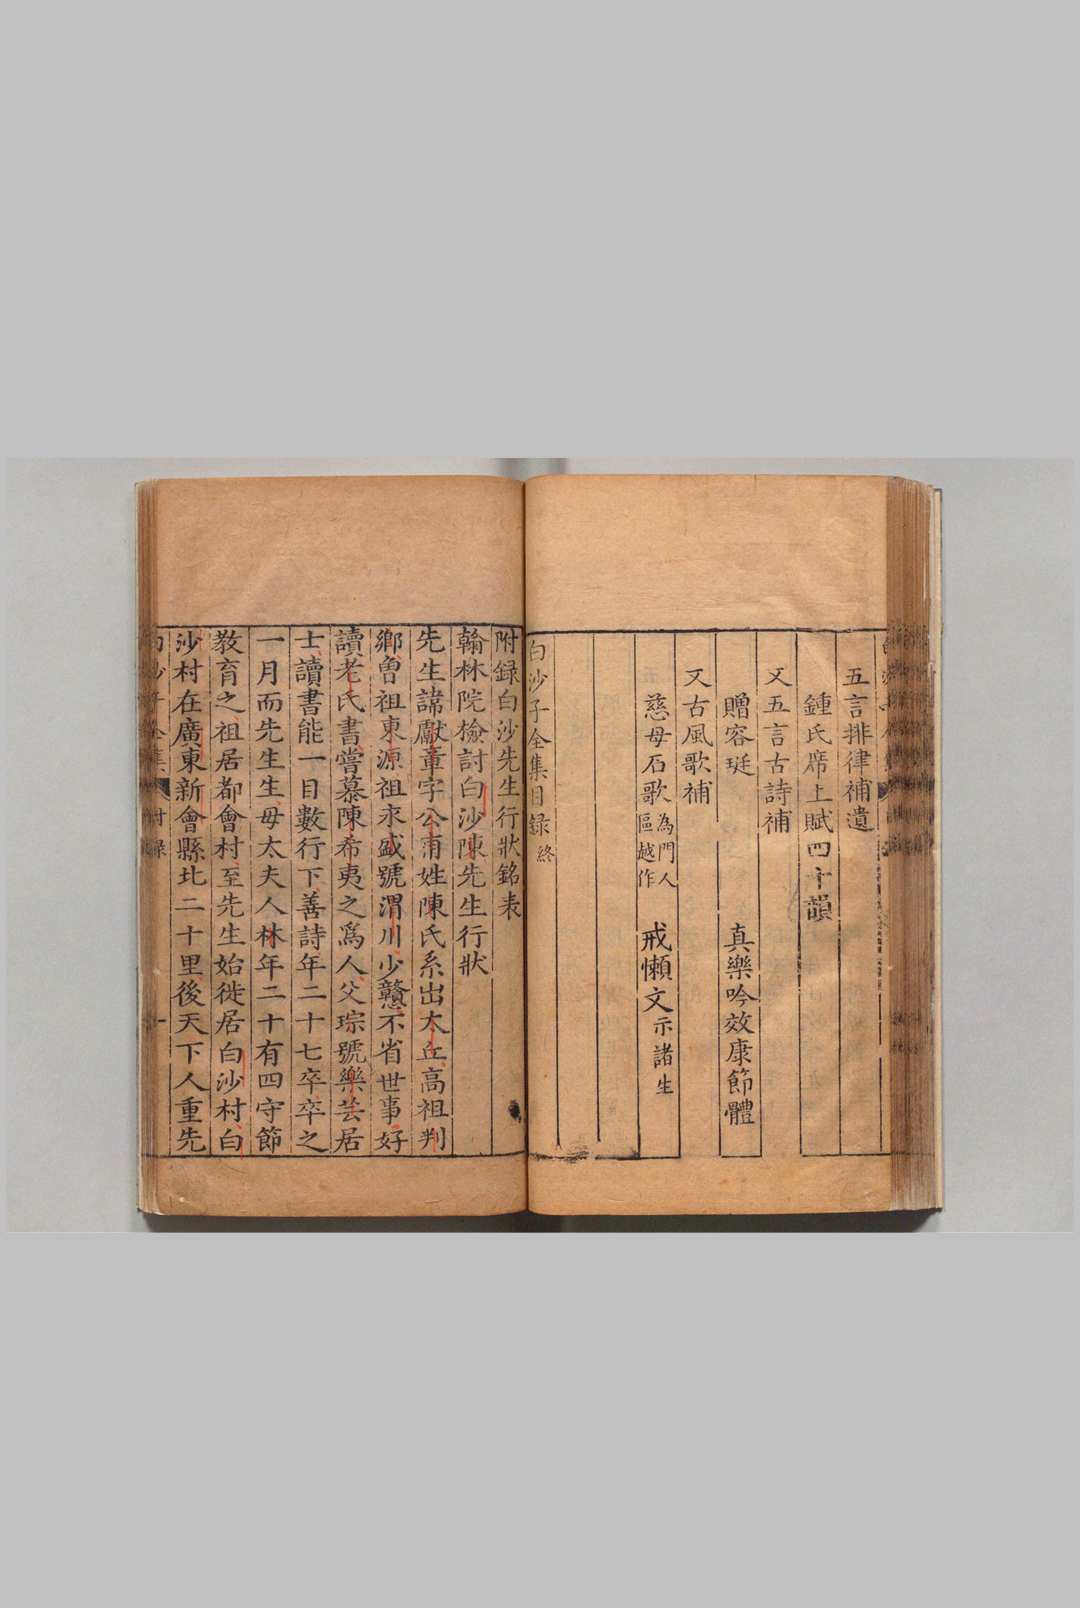 五言排律補遺
鍾氏席上賦四十韻
又五言古詩補
贈容珽　真樂吟效康節體
又古風歌補
慈母石歌為門人區越作　戒懶文示諸生
白沙子全集目録終
附録白沙先生行狀銘表
翰林院檢討白沙陳先生行狀
先生諱獻章字公甫姓陳氏系出太丘高祖判
鄉曽祖東源祖永盛號渭川少戇不省世事好
讀老氏書嘗慕陳希夷之爲人父琮號樂芸居
士讀書能一目數行下善詩年二十七卒卒之
一月而先生生母太夫人林年二十有四守節
教育之祖居都會村至先生始徙居白沙村白
沙村在廣東新會縣北二十里後天下人重先
白沙子全集　附録　一